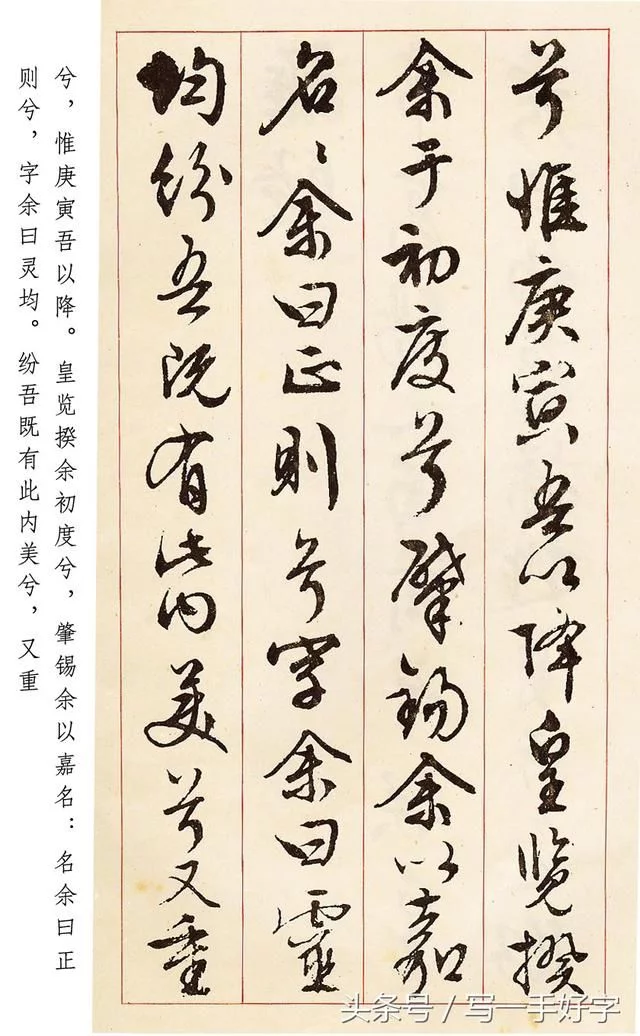 兮惟庚寅吾以降皇览揆
余于初度兮肇锡余以嘉
名々余曰正则兮字余曰靈
均纷吾既有此内美兮又重
兮，惟庚寅吾以降。皇览揆余初度兮，肇锡余以嘉名：名余曰正
则兮，字余曰灵均。纷吾既有此内美兮，又重
头条号／写一手好字